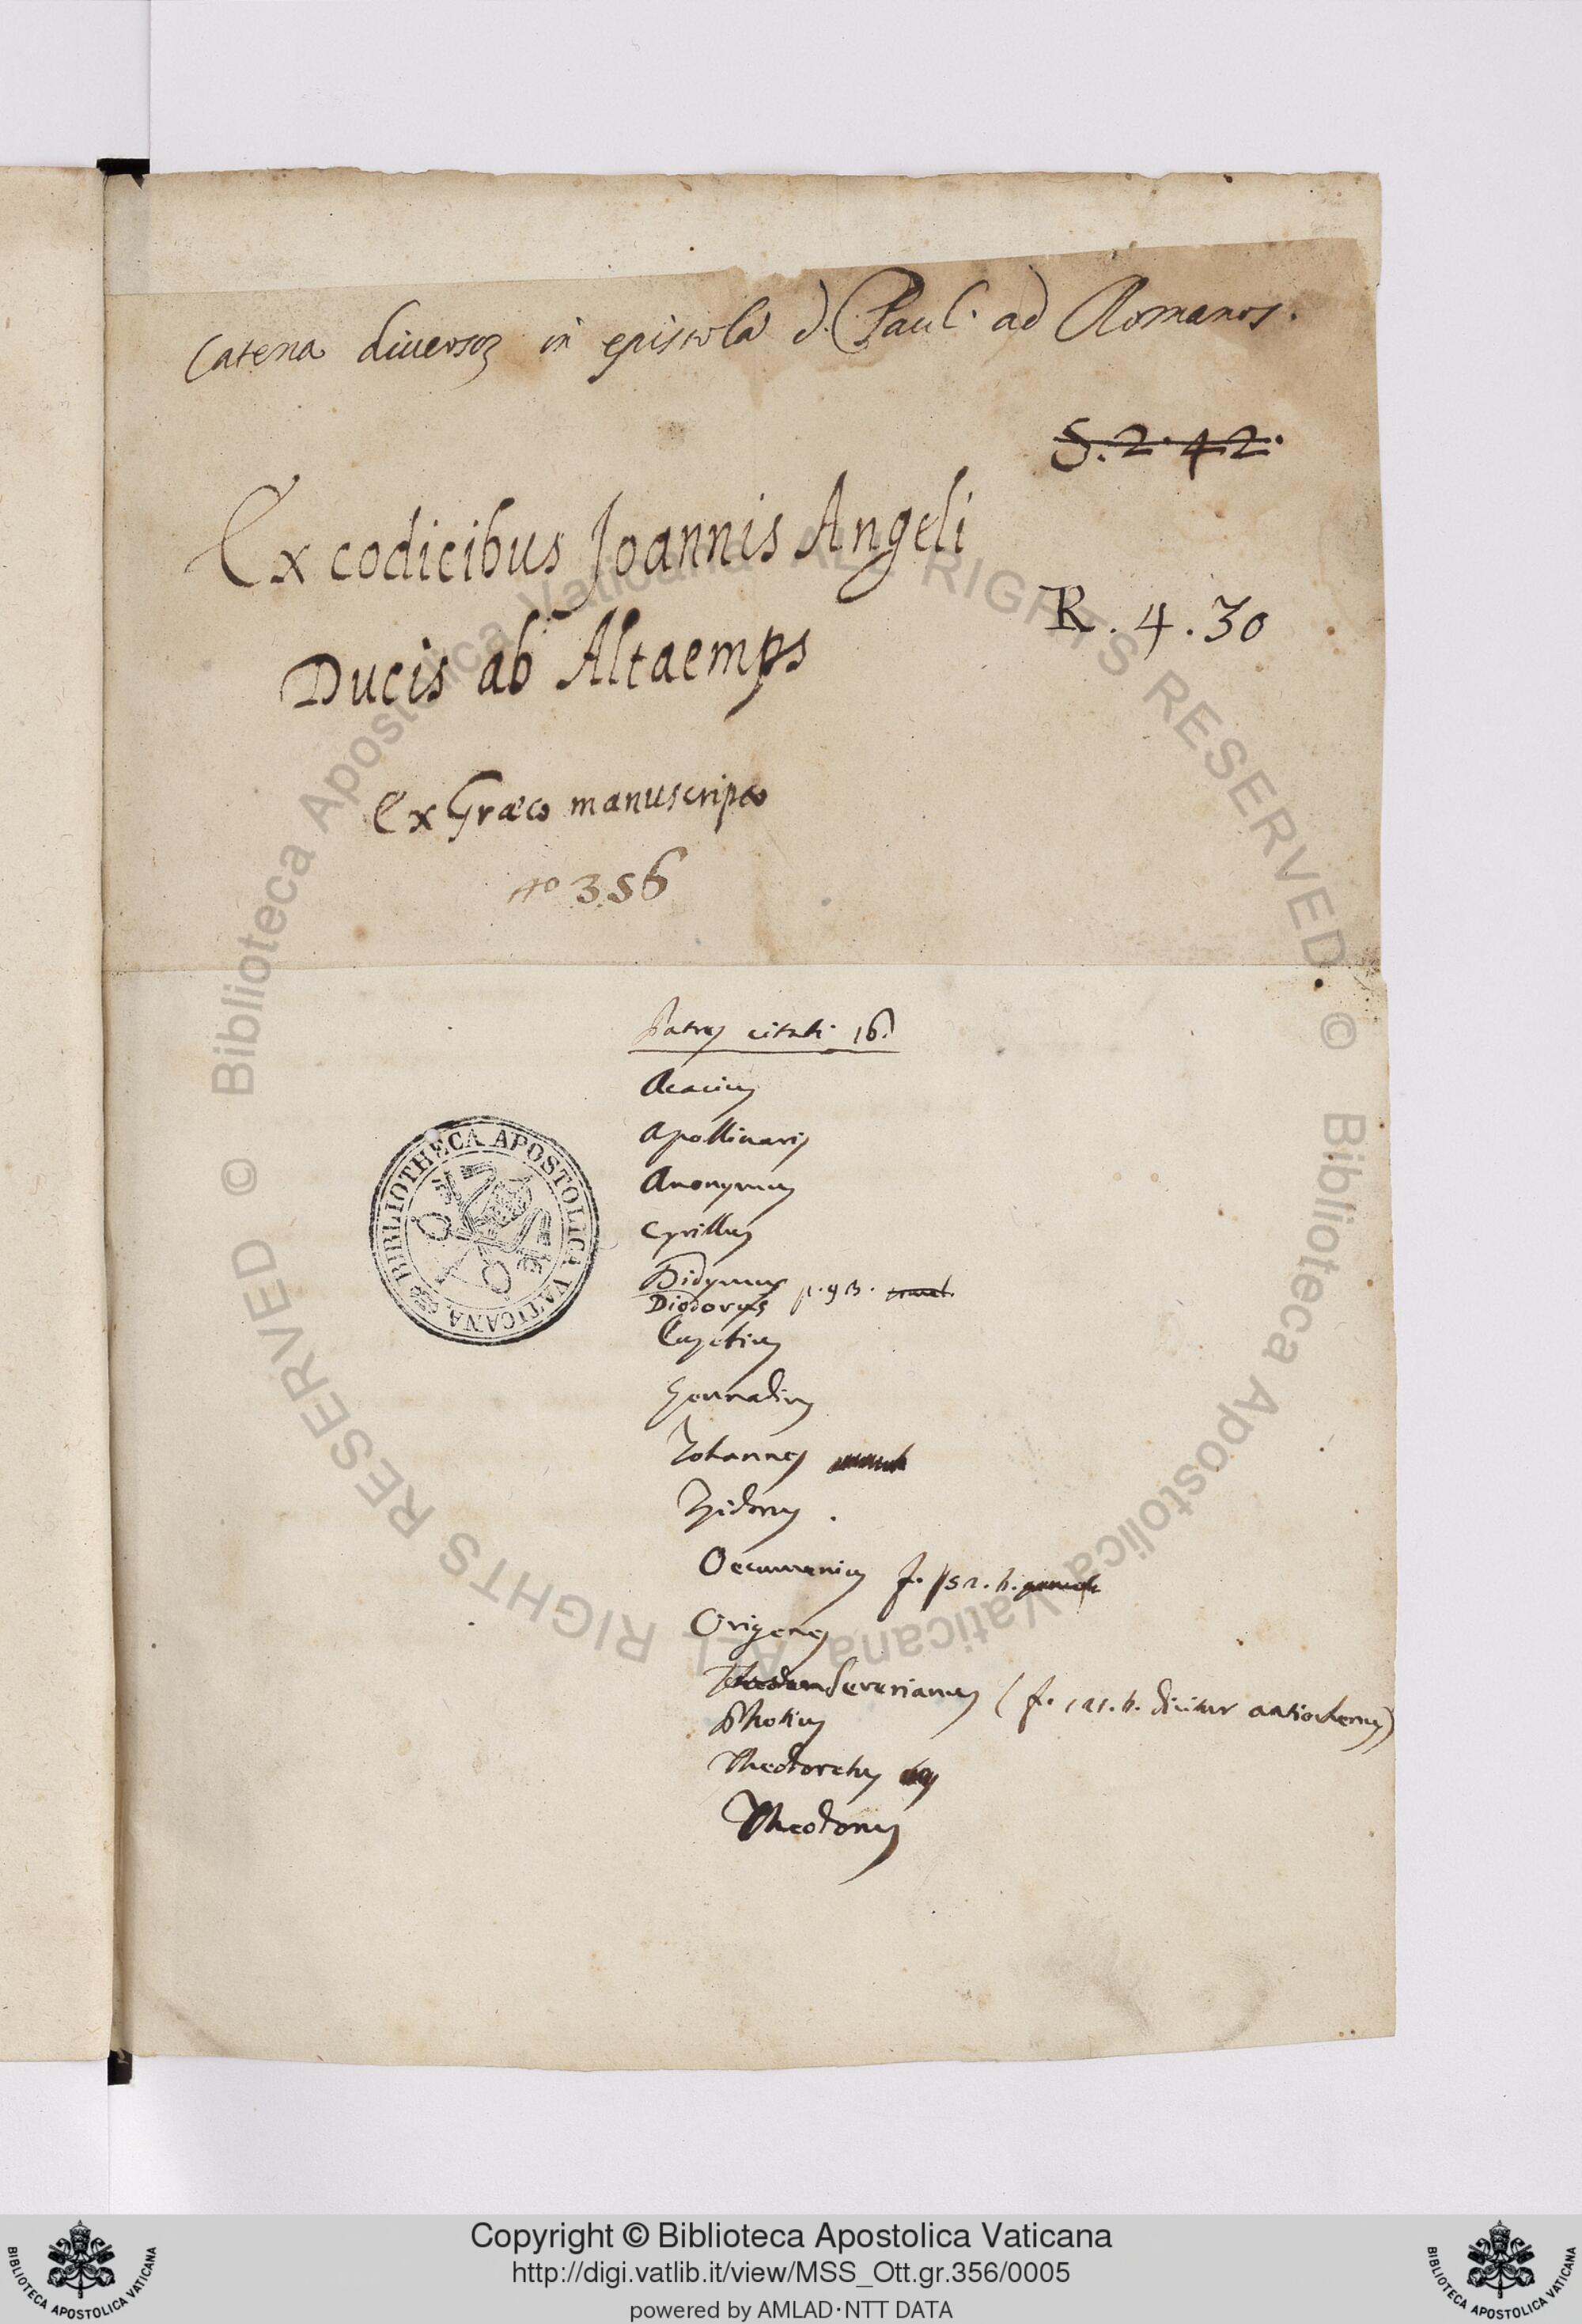 Catena diuersoꝝ in epistolā d. Paul. ad Romanos.
S. 2. 42.
Ex codicibus Joannis Angeli
Ducis ab Altaemps
R. 4. 30
Ex Græco manuscripto
no 356
Patres citati 16.
Acacius
Apollinaris
Anonymus
Cyrillus
Didymus
Diodorus
Gennadius
Johannes
Isidorus
Oecumenius
Origenes
Severianus
dicitur antiochenus)
Photius
Theodoretus
Theodorus
BIBLIOTHECA APOSTOLICA VATICANA
© Biblioteca Apostolica Vaticana ALL RIGHTS RESERVED
© Biblioteca Apostolica Vaticana ALL RIGHTS RESERVED
Copyright © Biblioteca Apostolica Vaticana
http://digi.vatlib.it/view/MSS_Ott.gr.356/0005
powered by AMLAD·NTT DATA
BIBLIOTECA APOSTOLICA VATICANA
BIBLIOTECA APOSTOLICA VATICANA